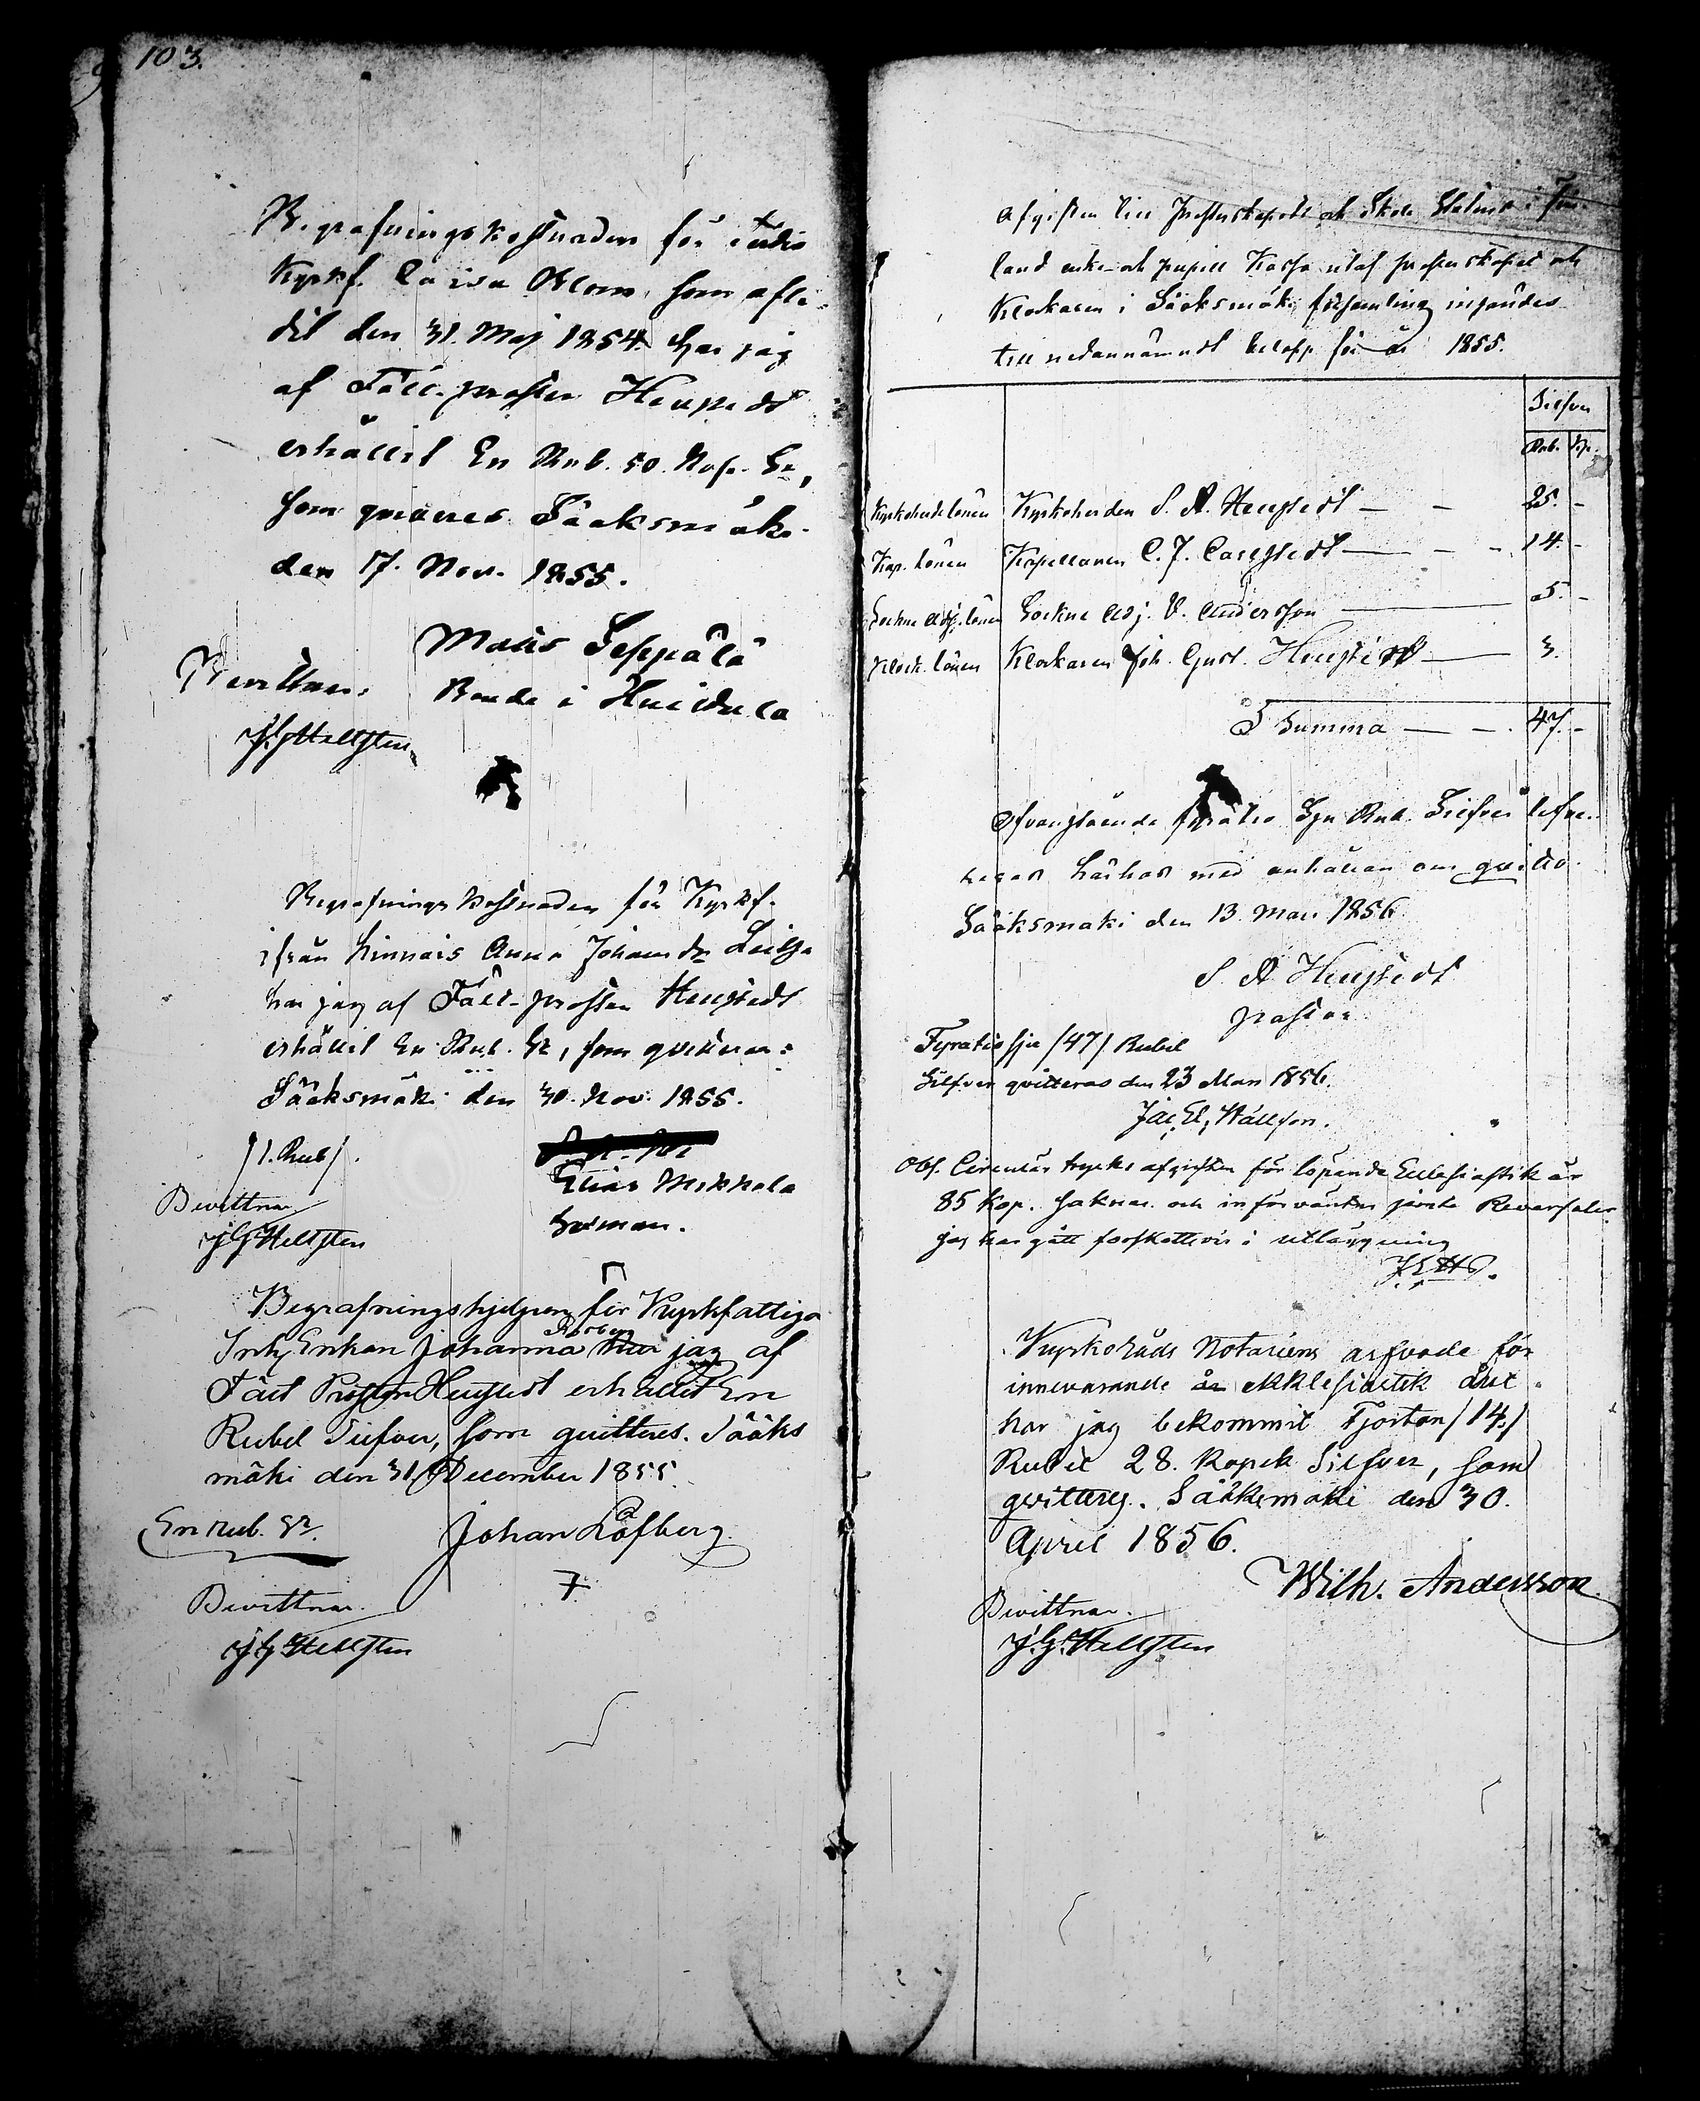 103.
Begrafningskostnaden för
Kyrkf. Lovisa Blom, som afli-
dit den 31. Maj 1854. har jag
af Fält-prosten Heugstedt
erhållit En Rub. 50. Kop. Sr,
som qvitteras. Sääksmäki
den 17. Nov. 1855.
Matts Seppälä
Bonde i Huidula
Bevittnar.
J G Hellsten
Begrafnings kostnaden för Kyrkf.
ifrån Linnais Anna Johansdr
har jag af Fält-prosten Heugstedt
erhållit En Rub. Sr, som qvitteras:
Sääksmäki den 30. Nov. 1855.
/1. Rub/.
Elias Mikkola
Bevittnar
J G Hellsten
Begrafningshjelpen för Kyrkfattiga
Inh. Enkan Johanna har jag af
Fält Prosten Heugstedt erhållit En
Rubel Silfver, som qvitteras. Sääks
mäki den 31 December 1855.
En rub. Sr.
Johan Löfberg
Bevittnar.
J G Hellsten
Afgiften till Presterskapets och Skole Statens i Fin-
land enke- och pupill Kassa utaf presterskapet och
Klockaren i Sääksmäki församling insändes
till nedannämndt belopp för år 1855.
Silfver
Rub. Kp.
Kyrkoherdelönen Kyrkoherden S. A. Heugstedt — - 25. -
Kap. Lönen Kapellanen C. J. Carlstedt — - - 14. -
Sockne Adj. lönen Sockne Adj. V. Andersson — 5. -
Klock. lönen Klockaren Joh. Gust. — 3.
Summa — - . 47. -
Ofvanstående fyratio Sju Rub. Silfver lefve-
reras härhos med anhållan om qvitto.
Sääksmäki den 13. Mars 1856.
S. A Heugstedt
pastor
Fyratiosju /47/ Rubel
Silfver qvitteras den 23 Mars 1856.
Jac. El. Hällfors.
Obs. Circulär trycks afgiften för löpande Ecclesiastik år
85 Kop. saknas och införväntes jemte Reversaler.
jag har gått förskottsvis i utläggning
J. E. H.
Kyrkoråds Notariens arfvode för
innevarande år ekklesiastik året
har jag bekommit Fjorton /14./
Rubel 28. Kopek Silfver, som
qvitteras. Sääksmäki den 30.
April 1856.
Wilh. Andersson
Bevittnar.
J. G. Hellsten